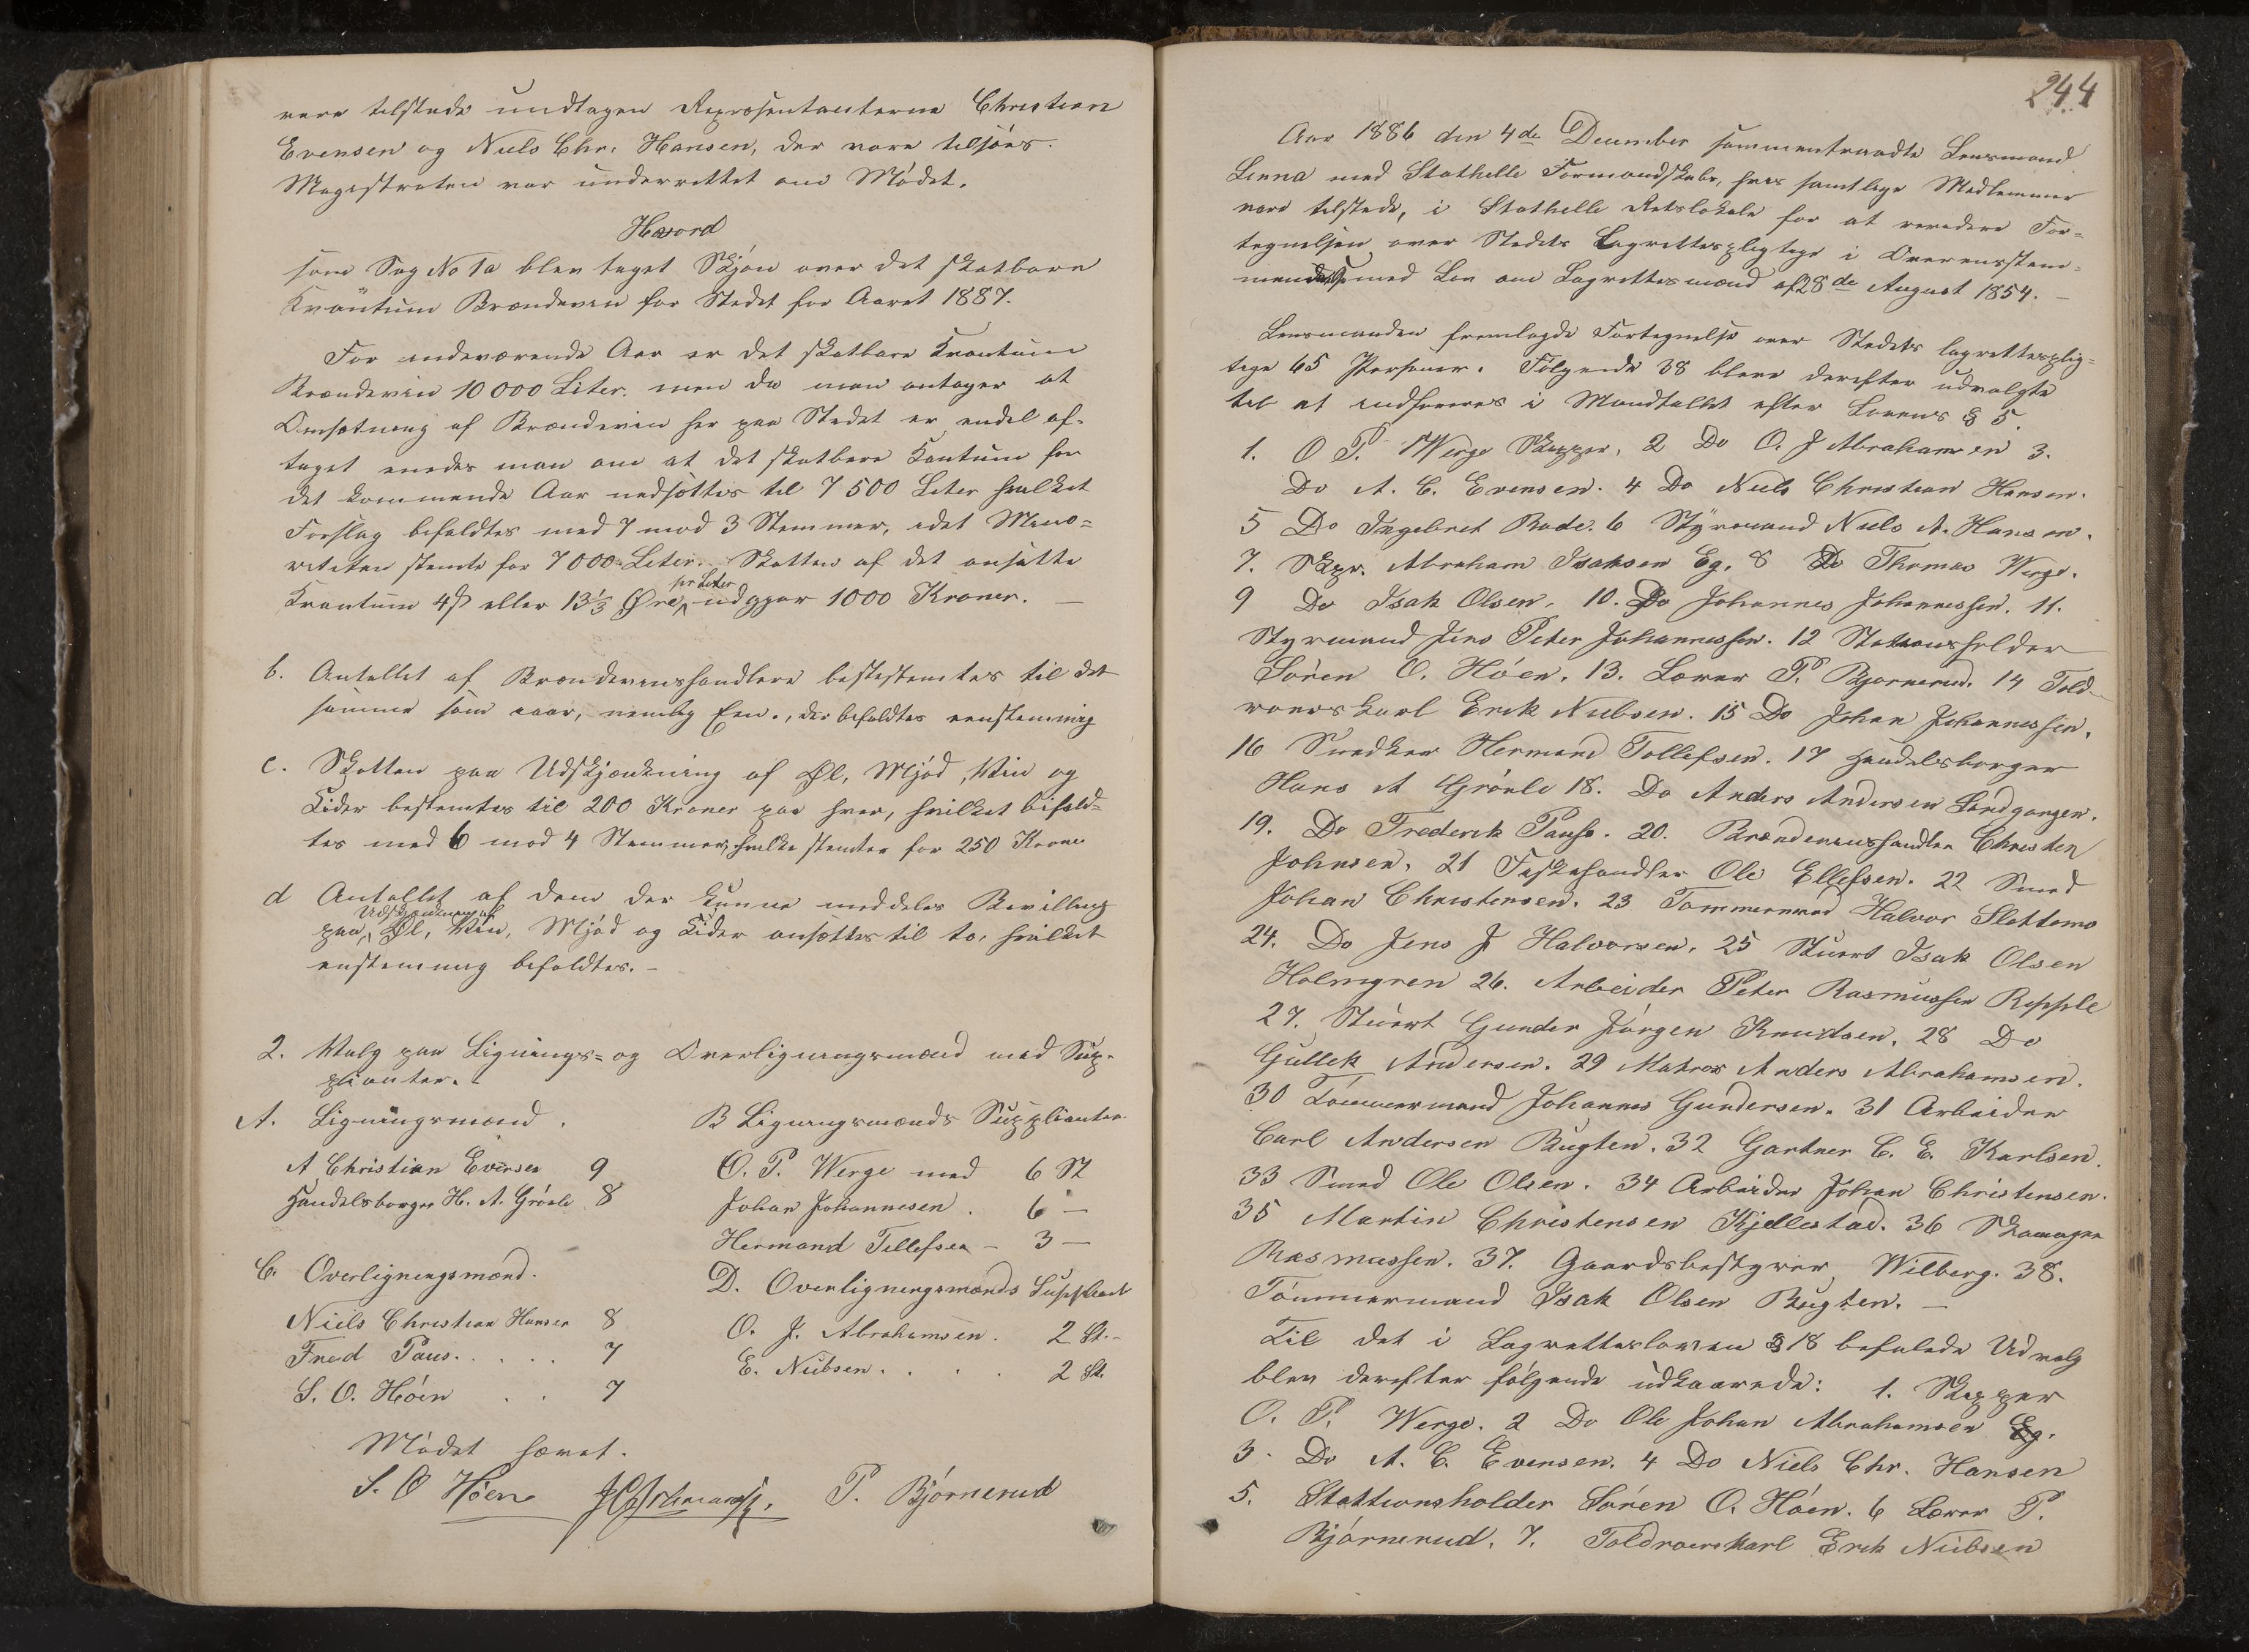 vare tilstede undtagen Repræsentanterne Christian
Evensen og Niels Chr. Hansen, der vare tilsjøes.
Magistraten var underrettet om Mødet.
Hvorpaa
som Sag No 1a blev taget Skjøn over det skatbare
Kvantum Brændevin for Stedet for Aaret 1887.
For indeværende Aar er det skatbare Kvantum
Brændevin 10 000 Liter. men da man antager at
Omsætning af Brændevin her paa Stedet er endel af-
taget enedes man om at det skatbare Kantum for
det kommende Aar nedsættes til 7 500 Liter hvilket
Forslag bifaldtes med 7 mod 3 Stemmer, idet Mino=
riteten stemte for 7000 Liter. Skatten af det ansatte
Kvantum 4ß eller 13⅓ Øre pr Liter udgjør 1000 Kroner. —
b. Antallet af Brændevinshandlere bestestemtes til det
samme som iaar, nemlig Een., der bifaldtes enstemmig
c. Skatten paa Udskjænkning af Øl, Mjød, Vin og
Cider bestemtes til 200 Kroner paa hver, hvilket bifald=
tes med 6 mod 4 Stemmer, hvilke stemte for 250 Kroner
d Antallet af dem der kunne meddeles Bevilling
paa Udskjænkning af Øl, Vin, Mjød og Cider ansættes til to, hvilket
enstemmig bifaldtes. –
2. Valg paa Lignings= og Overligningsmænd med Sup-
plianter.
A. Ligningsmænd.
A Christian Evensen 9
Handelsborger H. A. Grönli 8
B Ligningsmænds Supplianter
O. P. Werge med 6 St
Johan Johannesen. 6 —
Hermand Tellefsen – 3 —
C. Overligningsmænd.
Niels Christian Hansen 8
Fred Paus. . . . . 7
S. O. Höen . . 7
D. Overligningsmænds Suppliant
O. J. Abrahamsen. 2 St. –
E. Nielsen. . . . 2 St.
Mødet hævet.
S. O Høen P. Bjørnerud
244
Aar 1886 den 4de December sammentraadte Lensmand
Linna med Stathelle Formandskab, hvis samtlige Medlemmer
vare tilstede, i Stathelle Retslokale for at revidere For=
tegnelsen over Stedets Lagrettespligtige i Overensstem=
melse med Lov om Lagrettesmænd af 28de August 1854. –
Lensmanden fremlagde Fortegnelse over Stedets lagrettesplig=
tige 65 Personer. Følgende 38 bleve derefter udvalgte
til at indføres i Mandtallet efter Lovens § 5.
1. O P. Werge Skipper, 2 Do O. J Abrahamsen 3.
Do A. C. Evensen. 4 Do Niels Christian Hansen.
5 Do Ingebret Bode. 6 Styrmand Niels A. Hansen.
7. Skpr. Abraham Isaksen Eg. 8 Do Thomas Werge.
9 Do Isak Olsen, 10. Do Johannes Johannessen. 11.
Styrmand Jens Peter Johannessen. 12 Stationsholder
Sören O. Höen. 13. Lærer P. Bjørnerud. 14 Told-
roerskarl Erik Nielsen. 15 Do Johan Johannessen.
16 Snedker Hermand Tollefsen. 17 Handelsborger
Hans A Grönli 18. Do Anders Andersen Landgangen.
19. Do Frederik Pauss. 20. Brændevinshandler Christen
Johnsen. 21 Fiskehandler Ole Ellefsen. 22 Smed
Johan Christensen. 23 Tømmermand Halvor Slottemo
24. Do Jens J Halvorsen. 25 Stuert Isak Olsen
Holmgren 26. Arbeider Peter Rasmussen Repple
27. Stuert Gunder Jörgen Knudsen. 28 Do
Gullek Andersen. 29 Matros Anders Abrahamsen.
30 Tømmermand Johannes Gundersen. 31 Arbeider
Carl Andersen Bugten. 32 Gartner C. E. Karlsen.
33 Smed Ole Olsen. 34 Arbeider Johan Christensen.
35 Martin Christensen Kjellestad. 36 Skomager
Rasmussen. 37. Gaardsbestyrer Wilberg. 38.
Tömmermand Isak Olsen Bugten. —
Til det i Lagrettesloven § 18 befalede Udvalg
blev derefter følgende udkaarede: 1. Skipper
O. P. Werge. 2 Do Ole Johan Abrahamsen Eg.
3. Do A. C. Evensen. 4 Do Niels Chr. Hansen
5. Stattionsholder Sören O. Höen. 6 Lærer P.
Bjørnerud. 7. Toldroerskarl Erik Nielsen